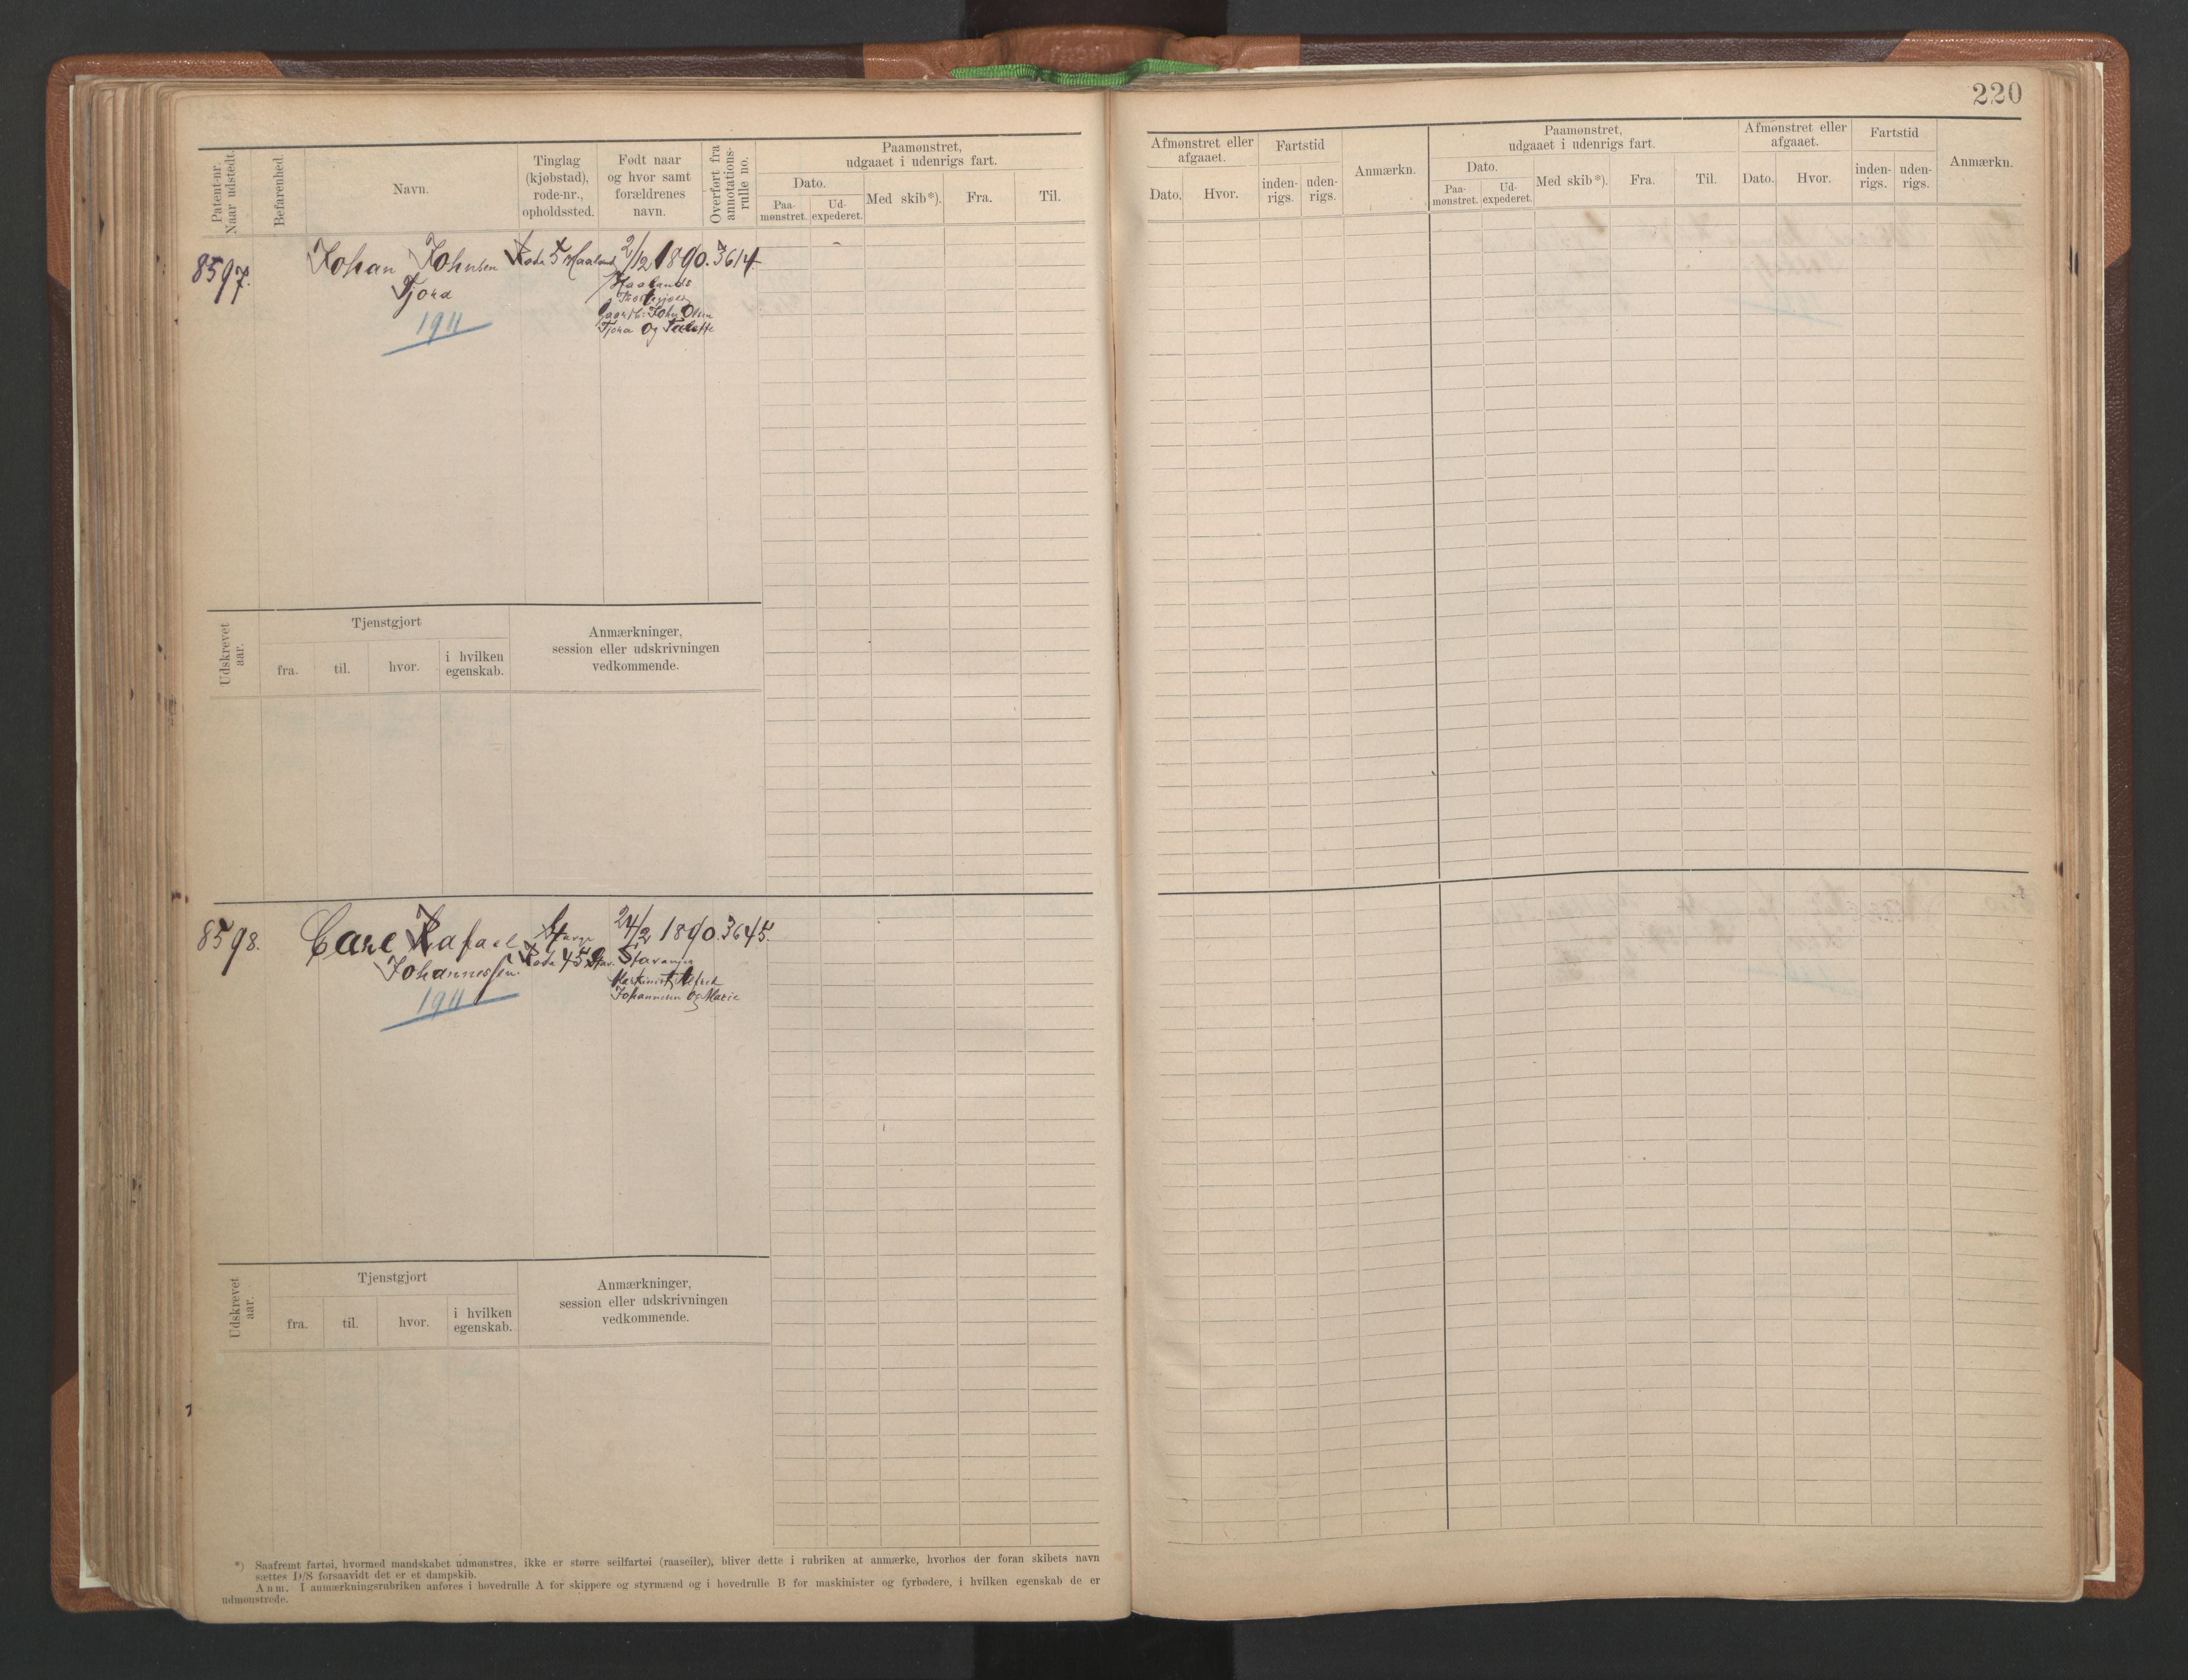 220
Patent-nr.
Naar udstedt.
Befarenhed.
Navn.
Tinglag
(kjøbstad),
rode-nr.,
opholdssted.
Født naar
og hvor samt
forældrenes
navn.
Overført fra
annotations-
rulle no.
Paamønstret,
udgaaet i udenrigs fart.
Dato.
Paa-
mønstret.
Ud-
expederet.
Med skib*).
Fra.
Til.
8597.
Johan Johnsen
Tjora
1911
Rode 5 Haaland
2/12 1890.
Haalands
John Olsen
Tjora og
3614
Udskrevet
aar.
Tjenstgjort
fra.
til.
hvor.
i hvilken
egenskab.
Anmærkninger,
session eller udskrivningen
vedkommende.
8598.
Carl Rafael
Johannessen.
1911
Rode 45
24/2 1890.
Stavanger
Maskinist Alfred
Johannesen og Marie
3645.
Udskrevet
aar.
Tjenstgjort
fra.
til.
hvor.
i hvilken
egenskab.
Anmærkninger,
session eller udskrivningen
vedkommende.
*) Saafremt fartøi, hvormed mandskabet udmønstres, ikke er større seilfartøi (raaseiler), bliver dette i rubriken at anmærke, hvorhos der foran skibets navn
sættes D/S forsaavidt det er et dampskib.
Anm. I anmærkningsrubriken anføres i hovedrulle A for skippere og styrmænd og i hovedrulle B for maskinister og fyrbødere, i hvilken egenskab de er
udmønstrede.
Afmønstret eller
afgaaet.
Dato.
Hvor.
Fartstid
inden-
rigs.
uden-
rigs.
Anmærkn.
Paamønstret,
udgaaet i udenrigs fart.
Dato.
Paa-
mønstret.
Ud-
expederet.
Med skib*).
Fra.
Til.
Afmønstret eller
afgaaet.
Dato.
Hvor.
Fartstid
inden-
rigs.
uden-
rigs.
Anmærkn.